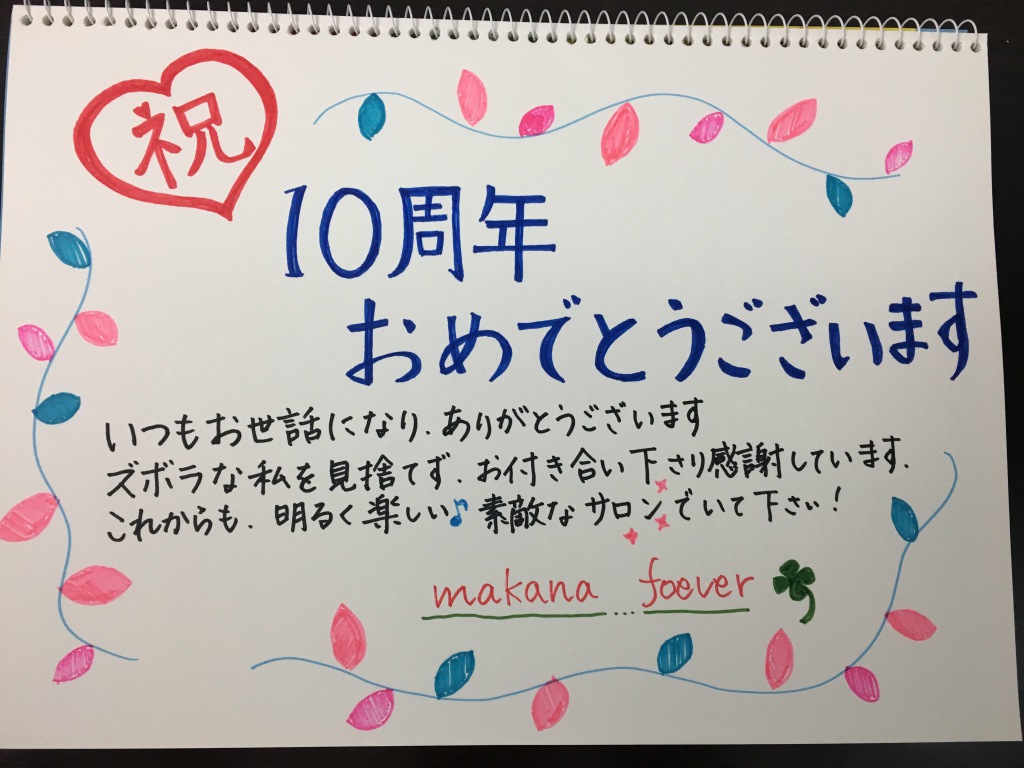 祝
10周年
おめでとうございます
いつもお世話になり、ありがとうございます
ズボラな私を見捨てず、お付き合い下さり感謝しています。
これからも、明るく楽しい♪素敵なサロンでいて下さい!
makana ... foever